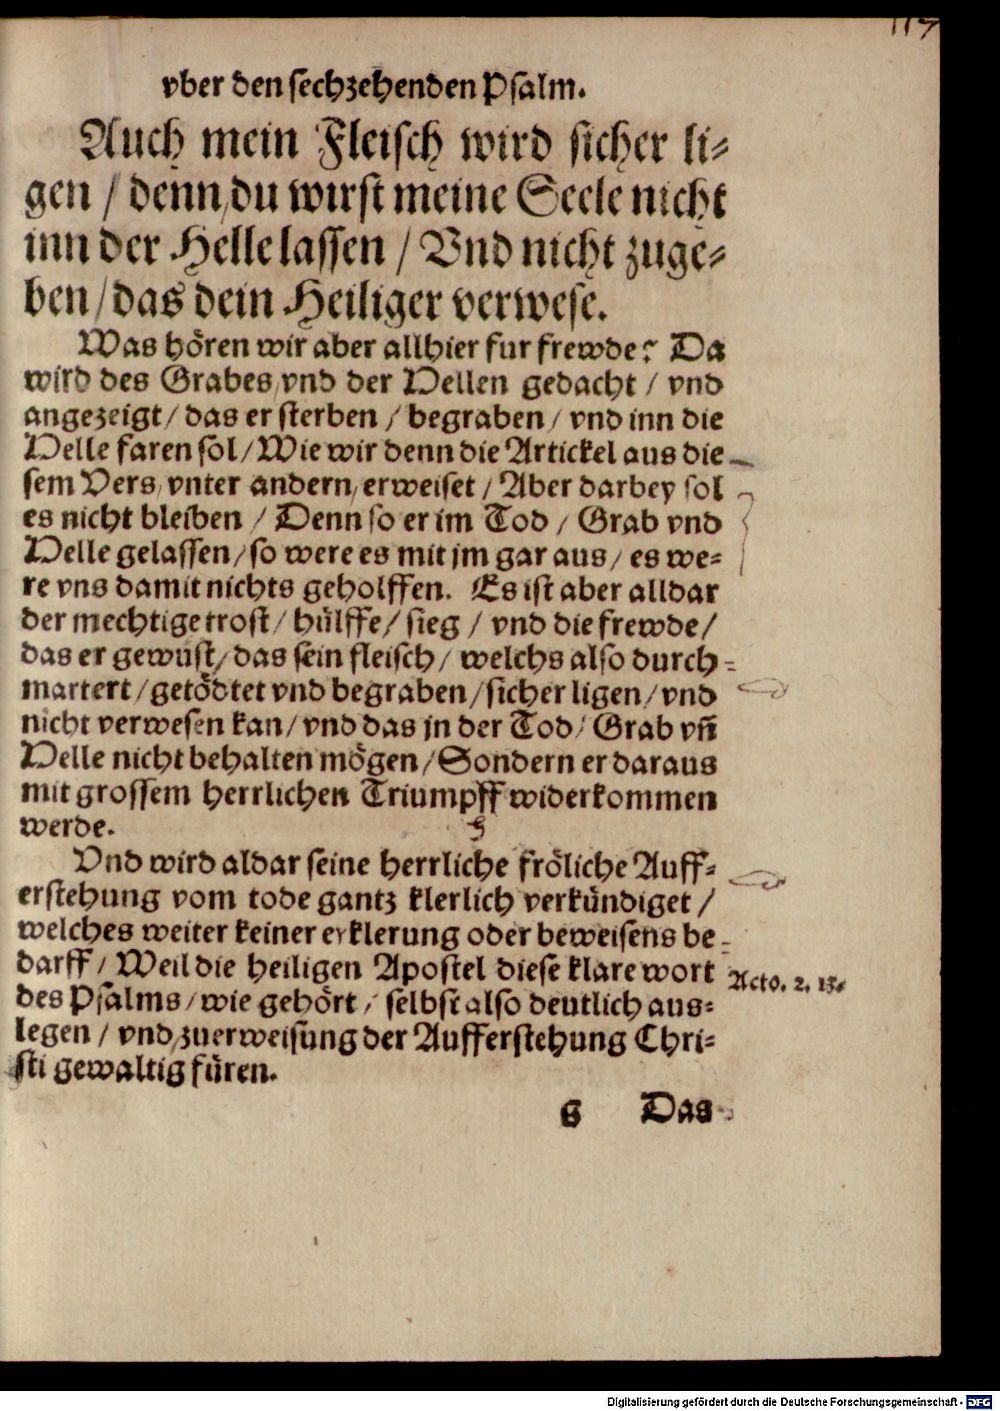 117
vber den sechzehenden Psalm.
Auch mein Fleisch wird sicher li⸗
gen / denn du wirst meine Seele nicht
inn der Helle lassen / Vnd nicht zuge⸗
ben / das dein Heiliger verwese.
Was hören wir aber allhier fur frewde? Da
wird des Grabes vnd der Hellen gedacht / vnd
angezeigt / das er sterben / begraben / vnd inn die
Helle faren sol / Wie wir denn die Artickel aus die
sem Vers vnter andern erweiset / Aber darbey sol
es nicht bleiben / Denn so er im Tod / Grab vnd
Helle gelassen / so were es mit jm gar aus / es we⸗
re vns damit nichts geholffen. Es ist aber alldar
der mechtige trost / hülffe / sieg / vnd die frewde /
das er gewust / das sein fleisch / welchs also durch⸗
martert / getödtet vnd begraben / sicher ligen / vnd
nicht verwesen kan / vnd das jn der Tod / Grab vñ
Helle nicht behalten mögen / Sondern er daraus
mit grossem herrlichen Triumpff widerkommen
werde.
Vnd wird aldar seine herrliche fröliche Auff⸗
erstehung vom tode gantz klerlich verkündiget /
welches weiter keiner erklerung oder beweisens be⸗
darff / Weil die heiligen Apostel diese klare wort
Acto. 2. 13.
des Psalms / wie gehört / selbst also deutlich aus⸗
legen / vnd zuerweisung der Aufferstehung Chri⸗
sti gewaltig füren.
G Das
Digitalisierung gefördert durch die Deutsche Forschungsgemeinschaft - DFG